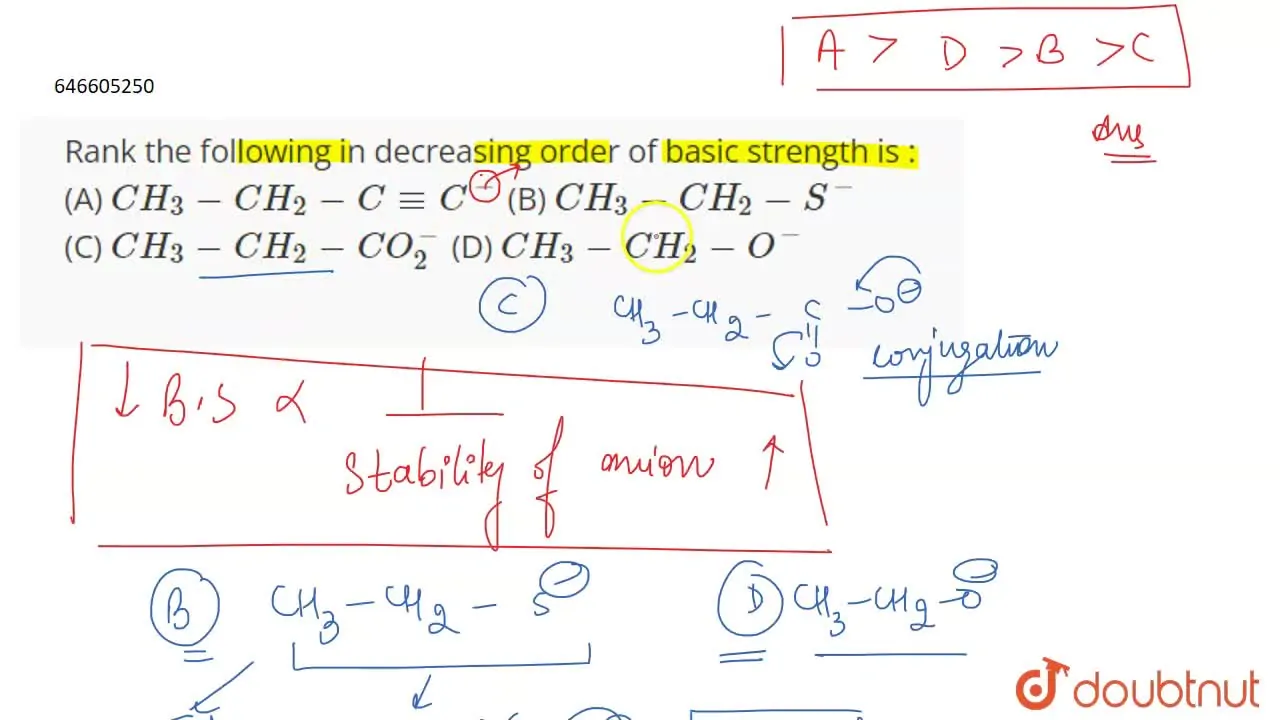 A > D > B > C
646605250
Ans
Rank the following in decreasing order of basic strength is :
(A) CH₃ − CH₂ − C ≡ C⁻ (B) CH₃ − CH₂ − S⁻
(C) CH₃ − CH₂ − CO₂⁻ (D) CH₃ − CH₂ − O⁻
C CH₃ − CH₂ − C − O⊖
|| O
conjugation
↓ B.S ∝ 1
stability of anion ↑
B CH₃ − CH₂ − S⊖ D CH₃ − CH₂ − O⊖
doubtnut